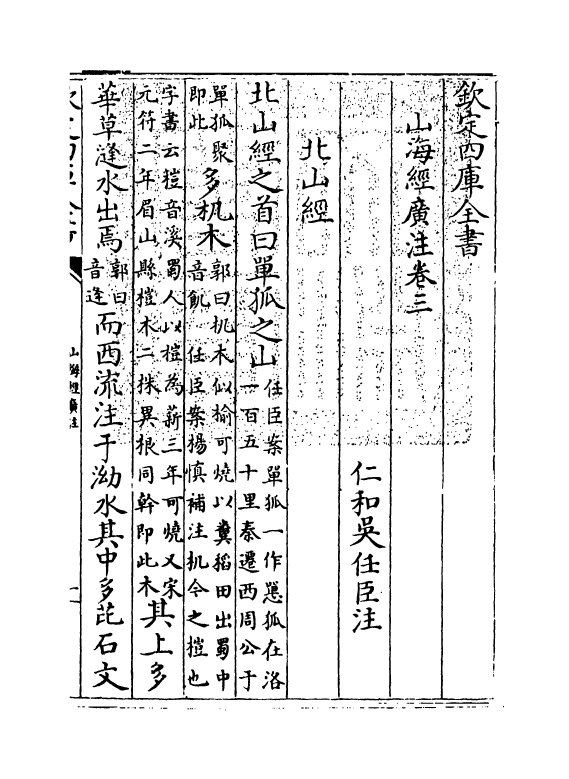 欽定四庫全書
山海經廣注卷三
仁和吳任臣注
北山經
北山經之首曰單狐之山任臣案單狐一作𢠸狐在洛一百五十里秦遷西周公于
單狐聚即此多机木郭曰机木似榆可燒以糞稻田出蜀中音飢 任臣案楊慎補注机今之榿也
字書云榿音溪蜀人以榿為薪三年可燒又宋元符二年眉山縣榿木二株異根同幹即此木其上多
華草漨水出焉郭曰音逢而西流注于泑水其中多芘石文
山海經廣注
一